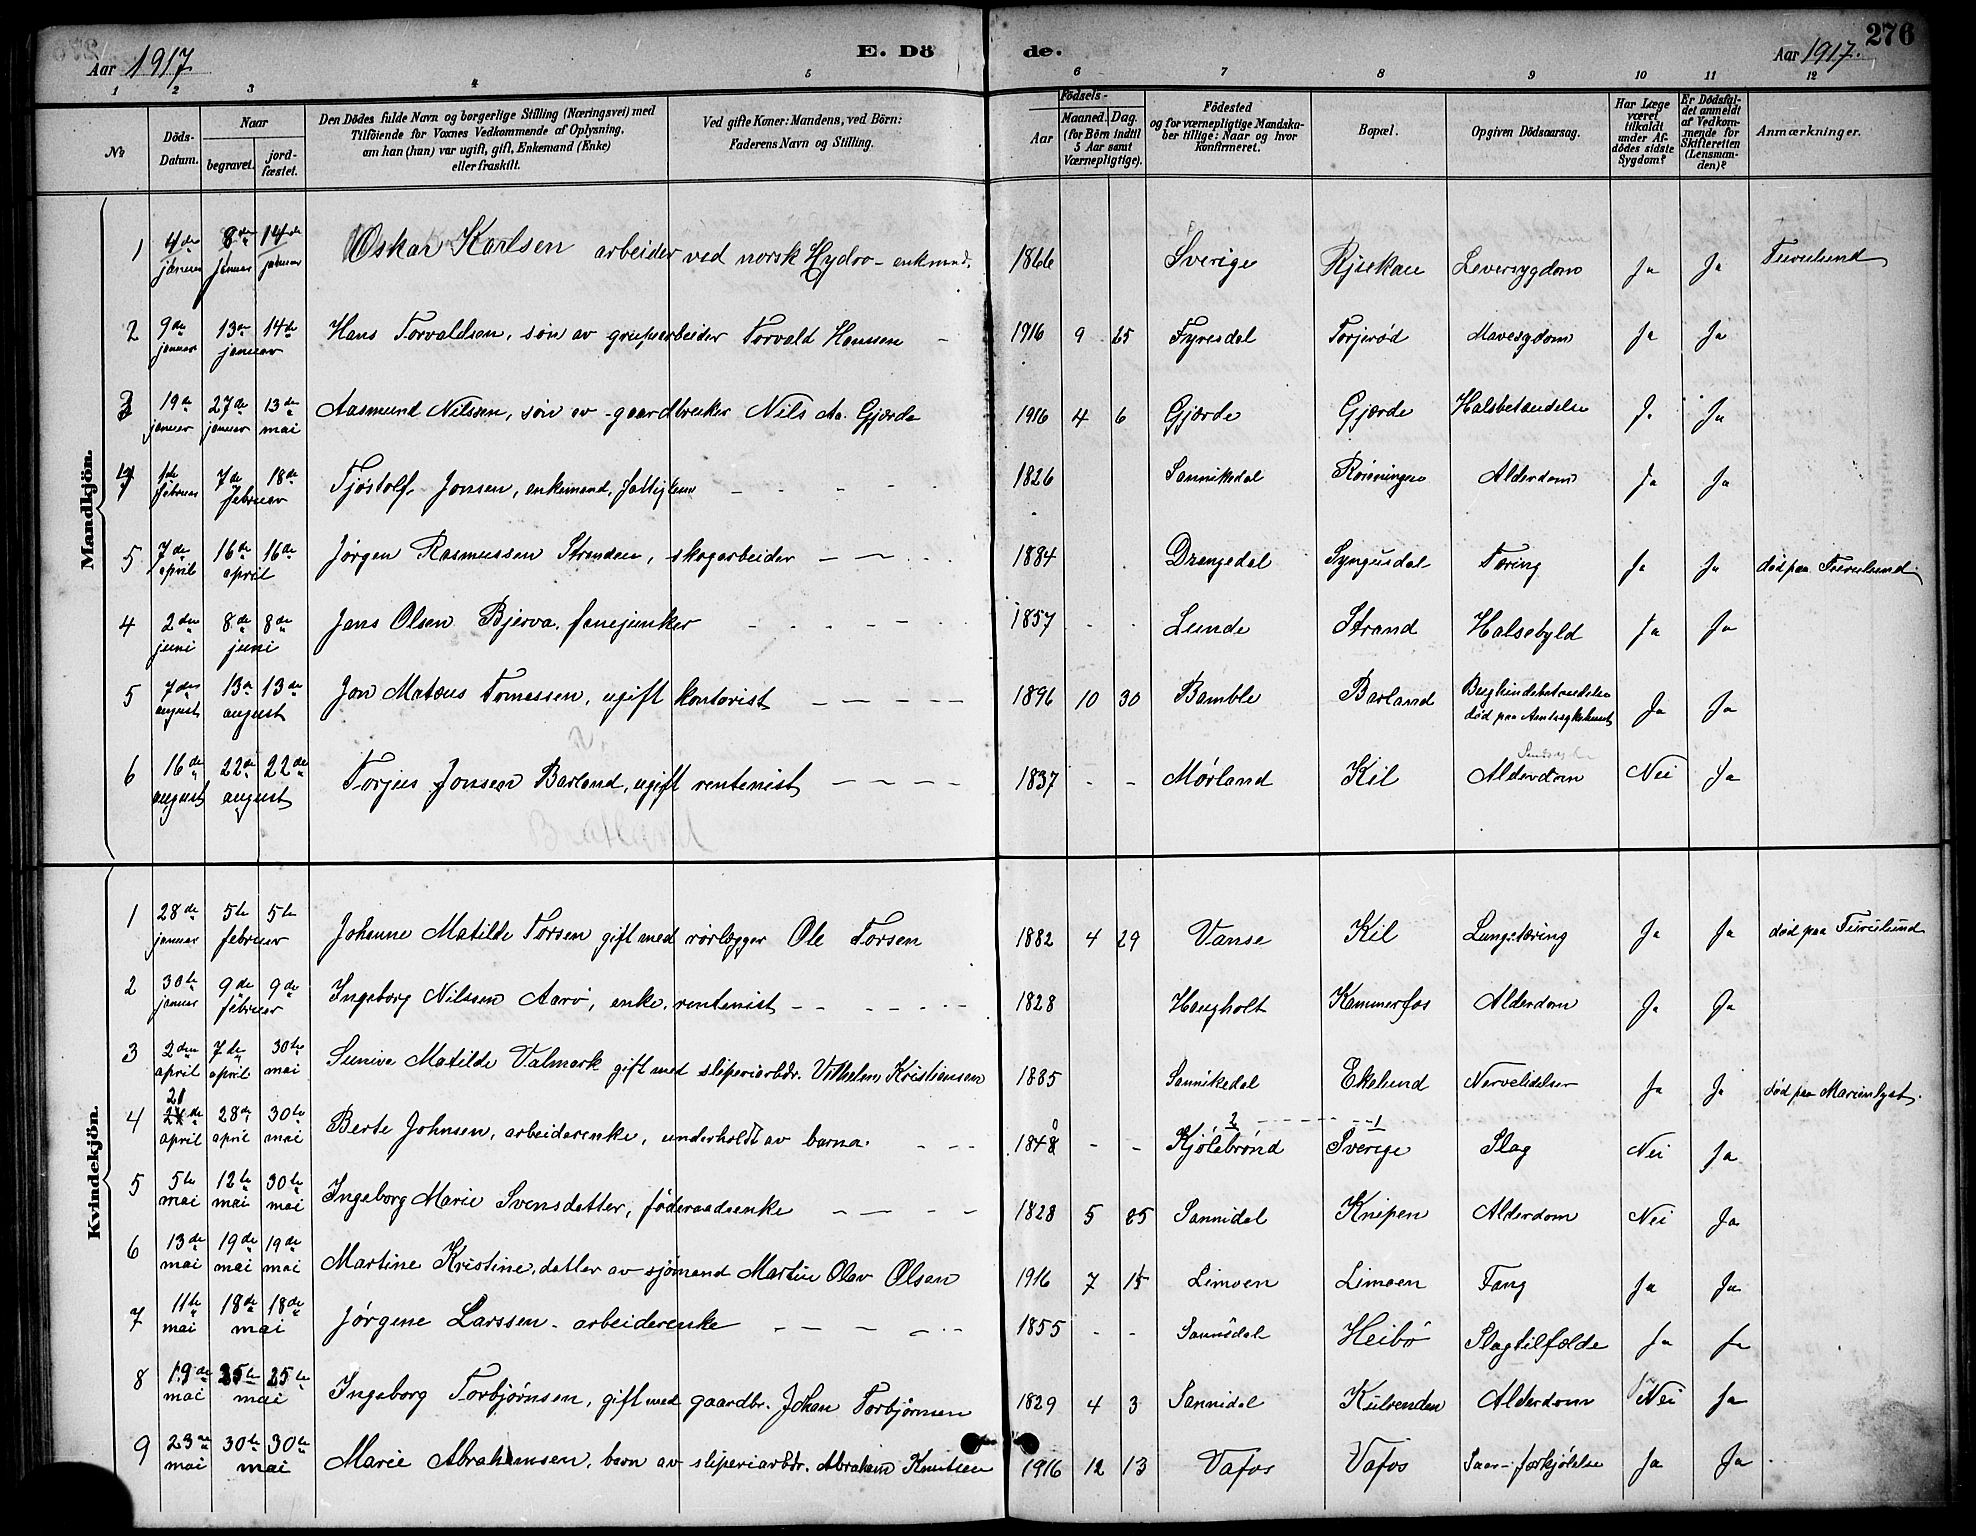 276
Aar 1917. E. Dö de. Aar 1917.
1 2 3 4 5 6 7 8 9 10 11 12
№ Döds-Datum. Naar begravet. jordfæstet. Den Dödes fulde Navn og borgerlige Stilling (Næringsvei) med Tilföiende for Voxnes Vedkommende af Oplysning, om han (hun) var ugift, gift, Enkemand (Enke) eller fraskilt. Ved gifte Koner: Mandens, ved Börn: Faderens Navn og Stilling. Födsels- Aar Maaned. Dag. (for Börn indtil 5 Aar samt Værnepligtige). Födested og for værnepligtige Mandskaber tillige: Naar og hvor konfirmeret. Bopæl. Opgiven Dödsaarsag. Har Læge været tilkaldt under Afdödes sidste Sygdom? Er Dödsfaldet anmeldt af Vedkommende for Skifteretten (Lensmanden)? Anmærkninger.
Mandkjön.
1 4de januar 8de januar 14de januar Oskar Karlsen arbeider ved norsk Hydro - enkemand. 1866 Sverige Rjukan Leversygdom Ja Ja Furulund
2 9de januar 13de 14de januar Hans Torvaldsen, søn av grubearbeider Torvald Hansen - 1916 9 25 Fyresdal Torjerød Mavesygdom Ja Ja
3 19de januar 27de januar 13de mai Aasmund Nilssen, søn av gaardbruker Nils Aa. Gjerde 1916 4 6 Gjerde Gjerde Halsbetændelse Ja Ja
4 1de februar 7de 18de februar Tjøstolf Jonsen, enkemand, fattiglem - - - 1826 Sannikedal Rønningen Alderdom Ja Ja
5 7de april 16de 16de april Jørgen Rasmussen Stranden, skogarbeider - - - 1884 Drangedal Tæring Ja Ja død paa Furulund
4 2den juni 8de 8de juni Jens Olsen Bjerva, fanejunker - - - 1857 - - Lunde Strand Halsebyld Ja Ja
5 7de august 13de 13de august Jon Matæus Tomassen, ugift kontorist - - - - 1896 10 30 Bamble Barland Bughindebetændelse død paa Amtssykehuset Ja Ja
6 16de august 22de 22de august Torjus Jonsen Barland, ugift rentenist - - - - 1837 - - Mørland Kil Alderdom Nei Ja
Kvindekjön.
1 28de januar 5te 5te februar Johanne Matilde Torsen gift med rørlægger Ole Torsen 1882 4 29 Vanse Kil Lungetæring Ja Ja død paa Furulund
2 30te januar 9de 9de februar Ingeborg Nilssen Aarø, enke, rentenist - - - - 1828 Haugholt Kammerfos Alderdom Ja Ja
3 2den april 7de april 30te mai Suniva Matilde Valmark gift med sliperiarbdr. Vilhelm Kristiansen 1885 Sannikedal Ekelund Nervelidelser Ja Ja død paa Marienlyst.
4 21de april 28de april 30te mai Berte Johnsen, arbeiderenke, underholdt av barna. - - - 1848 - - Kjølebrønd Sverige Slag Nei Ja
5 5te mai 12te mai 30te mai Ingeborg Marie Svensdatter, føderaadsenke - - - - 1828 5 25 Sannidal Knipen Alderdom Nei Ja
6 13de mai 19de mai 19de mai Martine Kristine, datter av sjømand Martin Olav Olsen 1916 7 15 Limoen Limoen Tang Ja Ja
7 11te mai 18de 18de mai Jørgine Larssen - arbeiderenke - - - - 1855 - - Sannidal Heibø Slagtilfælde Ja Ja
8 19de mai 25te 25te mai Ingeborg Torbjørnsen, gift med gaardbr. Johan Torbjørnsen 1829 4 3 Sannidal Alderdom Nei Ja
9 23de mai 30te 30te mai Marie Abrahamsen, barn av sliperiarbdr. Abraham Knutsen 1916 12 13 Vafos Vafos Ja Ja